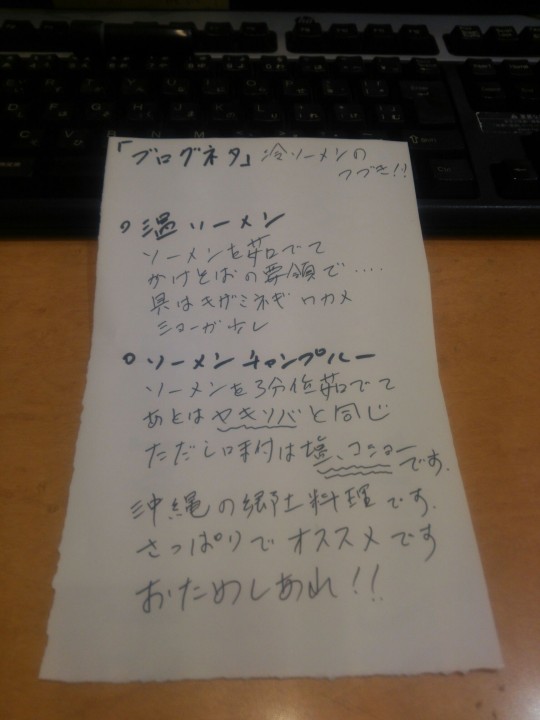 「ブログネタ」冷ソーメンの
つづき!!
○ 温ソーメン
ソーメンを茹でて
かけそばの要領で‥‥
具はキザミネギ ワカメ
ショーガ少し
○ ソーメンチャンプルー
ソーメンを3分位茹でて
あとはヤキソバと同じ
ただし味付は塩、コショーです.
沖縄の郷土料理です.
さっぱりでオススメです
おためしあれ!!